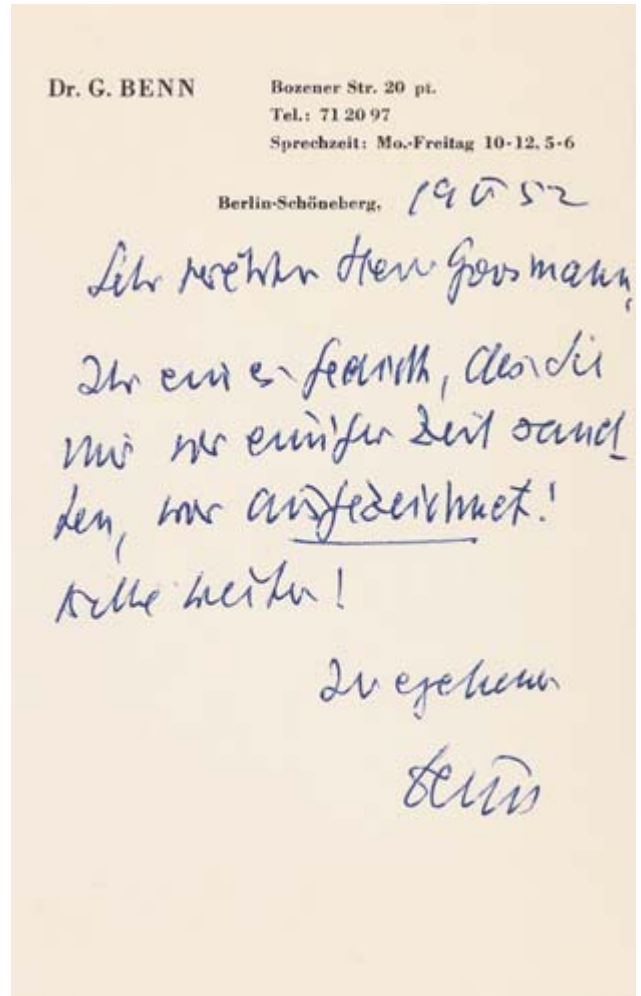 Dr. G. BENN
Bozener Str. 20 pt.
Tel.: 71 20 97
Sprechzeit: Mo.-Freitag 10-12, 5-6
Berlin-Schöneberg, 19 V 52
Sehr verehrter Herr Goosmann,
Ihr eines Gedicht, das Sie
mir vor einiger Zeit sand-
ten, war ausgezeichnet!
Bitte weiter!
Ihr ergebener
Benn